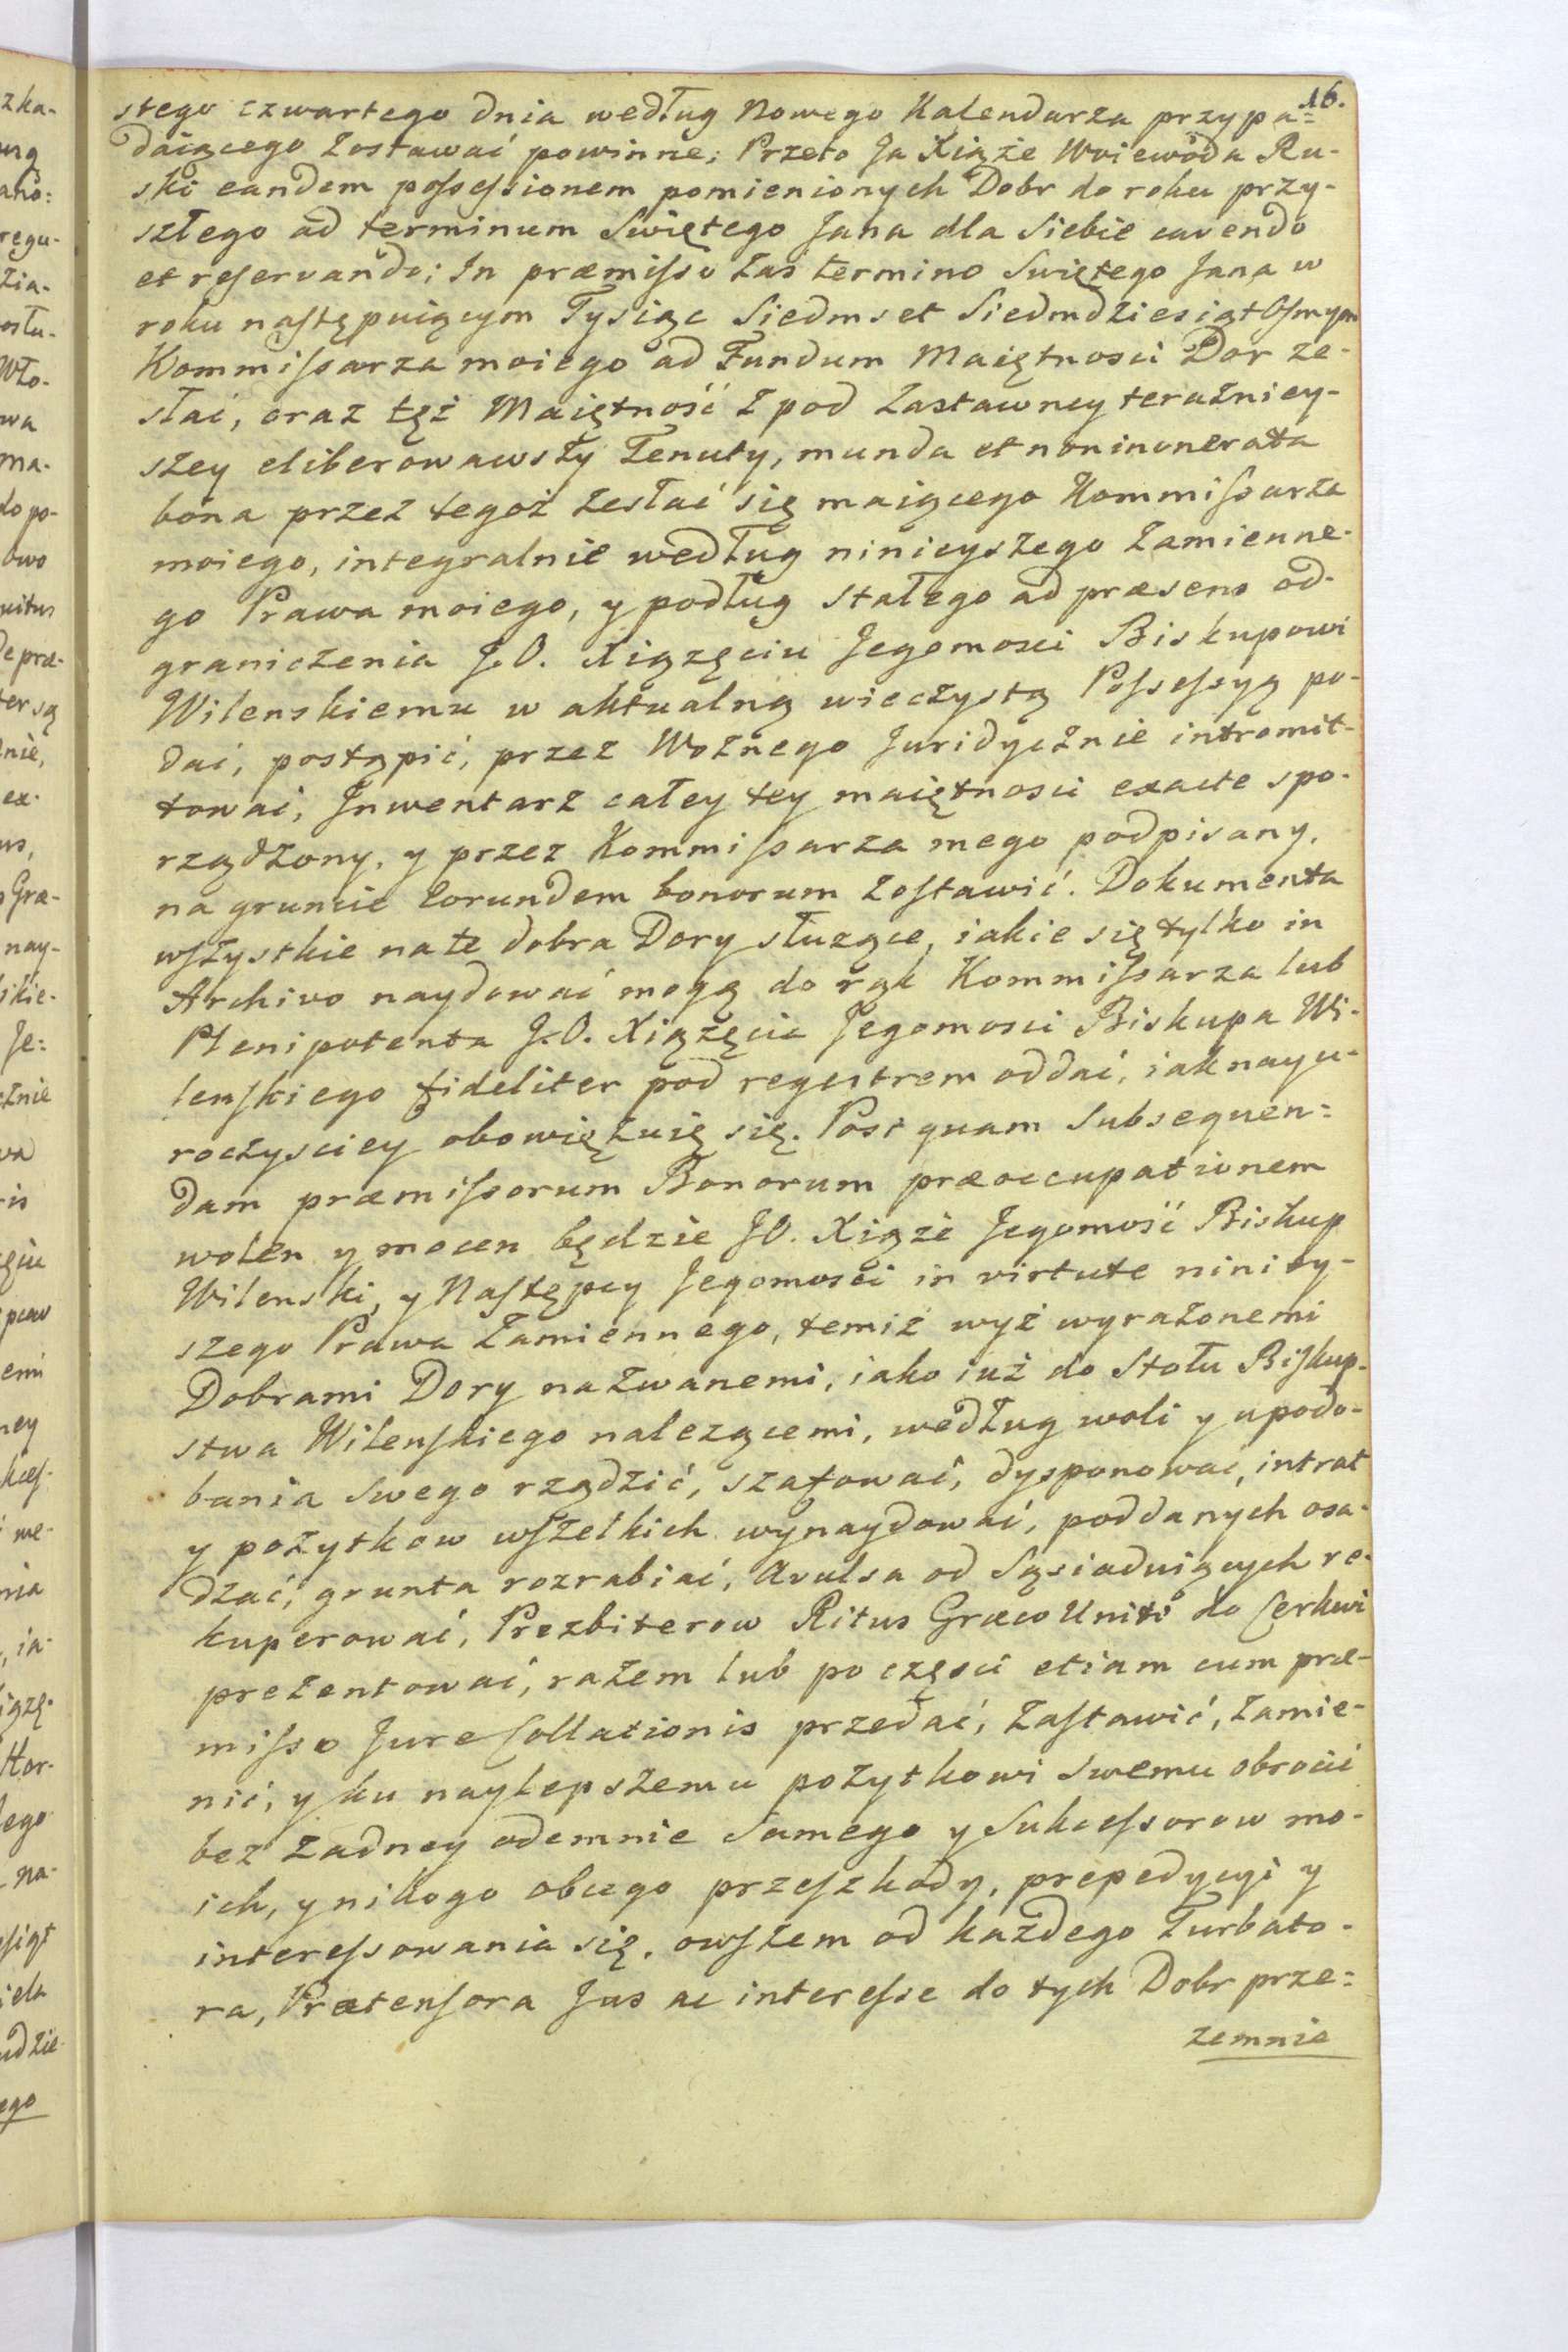 16.
stego czwartego dnia według Nowego Kalendarza przypa=
daiącego zostawać powinne; Przeto Ja Xiąże Woiewoda Ru-
ski eandem possessionem pomienionych Dobr do roku przy-
szłego ad terminum Swiętego Jana dla siebie cavendo
et reservando; In præmisso zas termino Swiętego Jana w
roku następuiącym Tysiąc Siedmset Siedmdziesiąt Osmym
Kommissarza moiego ad Fundum Maiętnosci Dor ze-
słać, oraz tęż Maiętność z pod zastawney teraźniey-
szey eliberowawszy Tenuty, munda et noninonerata
bona przez tegoż zesłać się maiącego Kommissarza
moiego, integralnie według ninieyszego zamienne-
go Prawa moiego, y podług stałego ad præsens od-
graniczenia J.O. Xiążęciu Jegomosci Biskupowi
Wilenskiemu w aktualną wieczystą Possessyą po-
dać, postąpić, przez Woźnego Juridycznie intromit-
tować, Inwentarz całey tey maiętnosci exacte spo-
rządzony, y przez Kommissarza mego podpisany,
na gruncie eorundem bonorum zostawić. Dokumenta
wszystkie na te dobra Dory służące, iakie się tylko in
Archivo naydować mogą do rąk Kommissarza lub
Plenipotenta J.O. Xiążęcia Jegomosci Biskupa Wi-
lenskiego fideliter pod regestrem oddać, iaknayu-
roczysciey obowięzuię się. Post quam subsequen=
dam præmissorum Bonorum præoccupationem
wolen y mocen będzie JO. Xiąże Jegomość Biskup
Wilenski, y Następcy Jegomosci in virtute niniey-
szego Prawa Zamiennego, temiż wyż wyrażonemi
Dobrami Dory nazwanemi, iako iuż do Stołu Biskup-
stwa Wilenskiego nalezącemi, według woli y upodo-
bania swego rządzić, szafować, dysponować, intrat
y pożytkow wszelkich wynaydować, poddanych osa-
dzać, grunta rozrabiać, Avulsa od Sąsiaduiących re-
kuperować, Prezbiterow Ritus Græco Uniti do Cerkwi
prezentować, razem lub po częsci etiam cum præ-
misso Jure Collationis przedać, zastawić, zamie-
nić, y ku naylepszemu pożytkowi swemu obrocić
bez żadney odemnie samego y Sukcessorow mo-
ich, y nikogo obcego przeszkody, prepedycyi y
interessowania się, owszem od każdego Turbato-
ra, Prætensora Jus ac interesse do tych Dobr prze=
zemnie